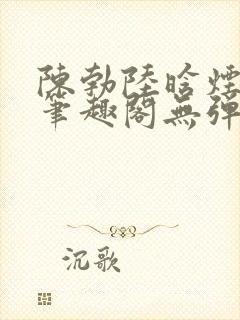 陳勃陸晗煙
筆趣閣無彈
沉歌